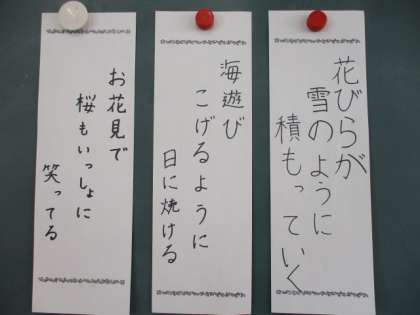 花びらが
雪のように
積もっていく
海遊び
こげるように
日に焼ける
お花見で
桜もいっしょに
笑ってる